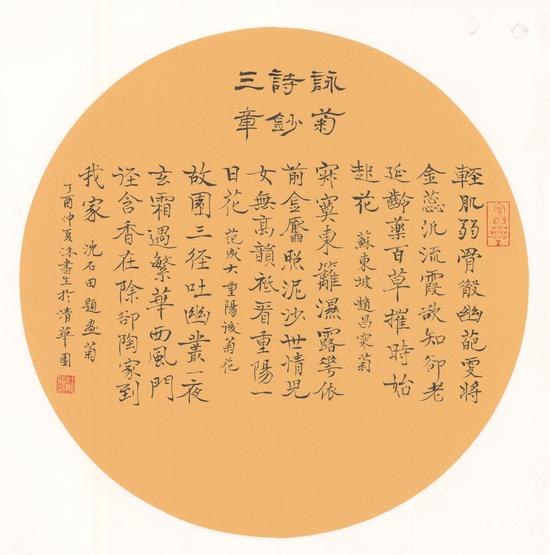 詠菊
詩鈔
三章
輕肌弱骨散幽葩更將
金蕊泛流霞欲知卻老
延齡藥百草摧時始
起花 蘇東坡 趙昌寒菊
寂寞東籬濕露華依
前金靨照泥沙世情兒
女無高韻衹看重陽一
日花 范成大 重陽後菊花
故園三徑吐幽叢一夜
玄霜遇繁華西風門
徑含香在除卻陶家到
我家 沈石田 題畫菊
丁酉仲夏沐書生於清華園